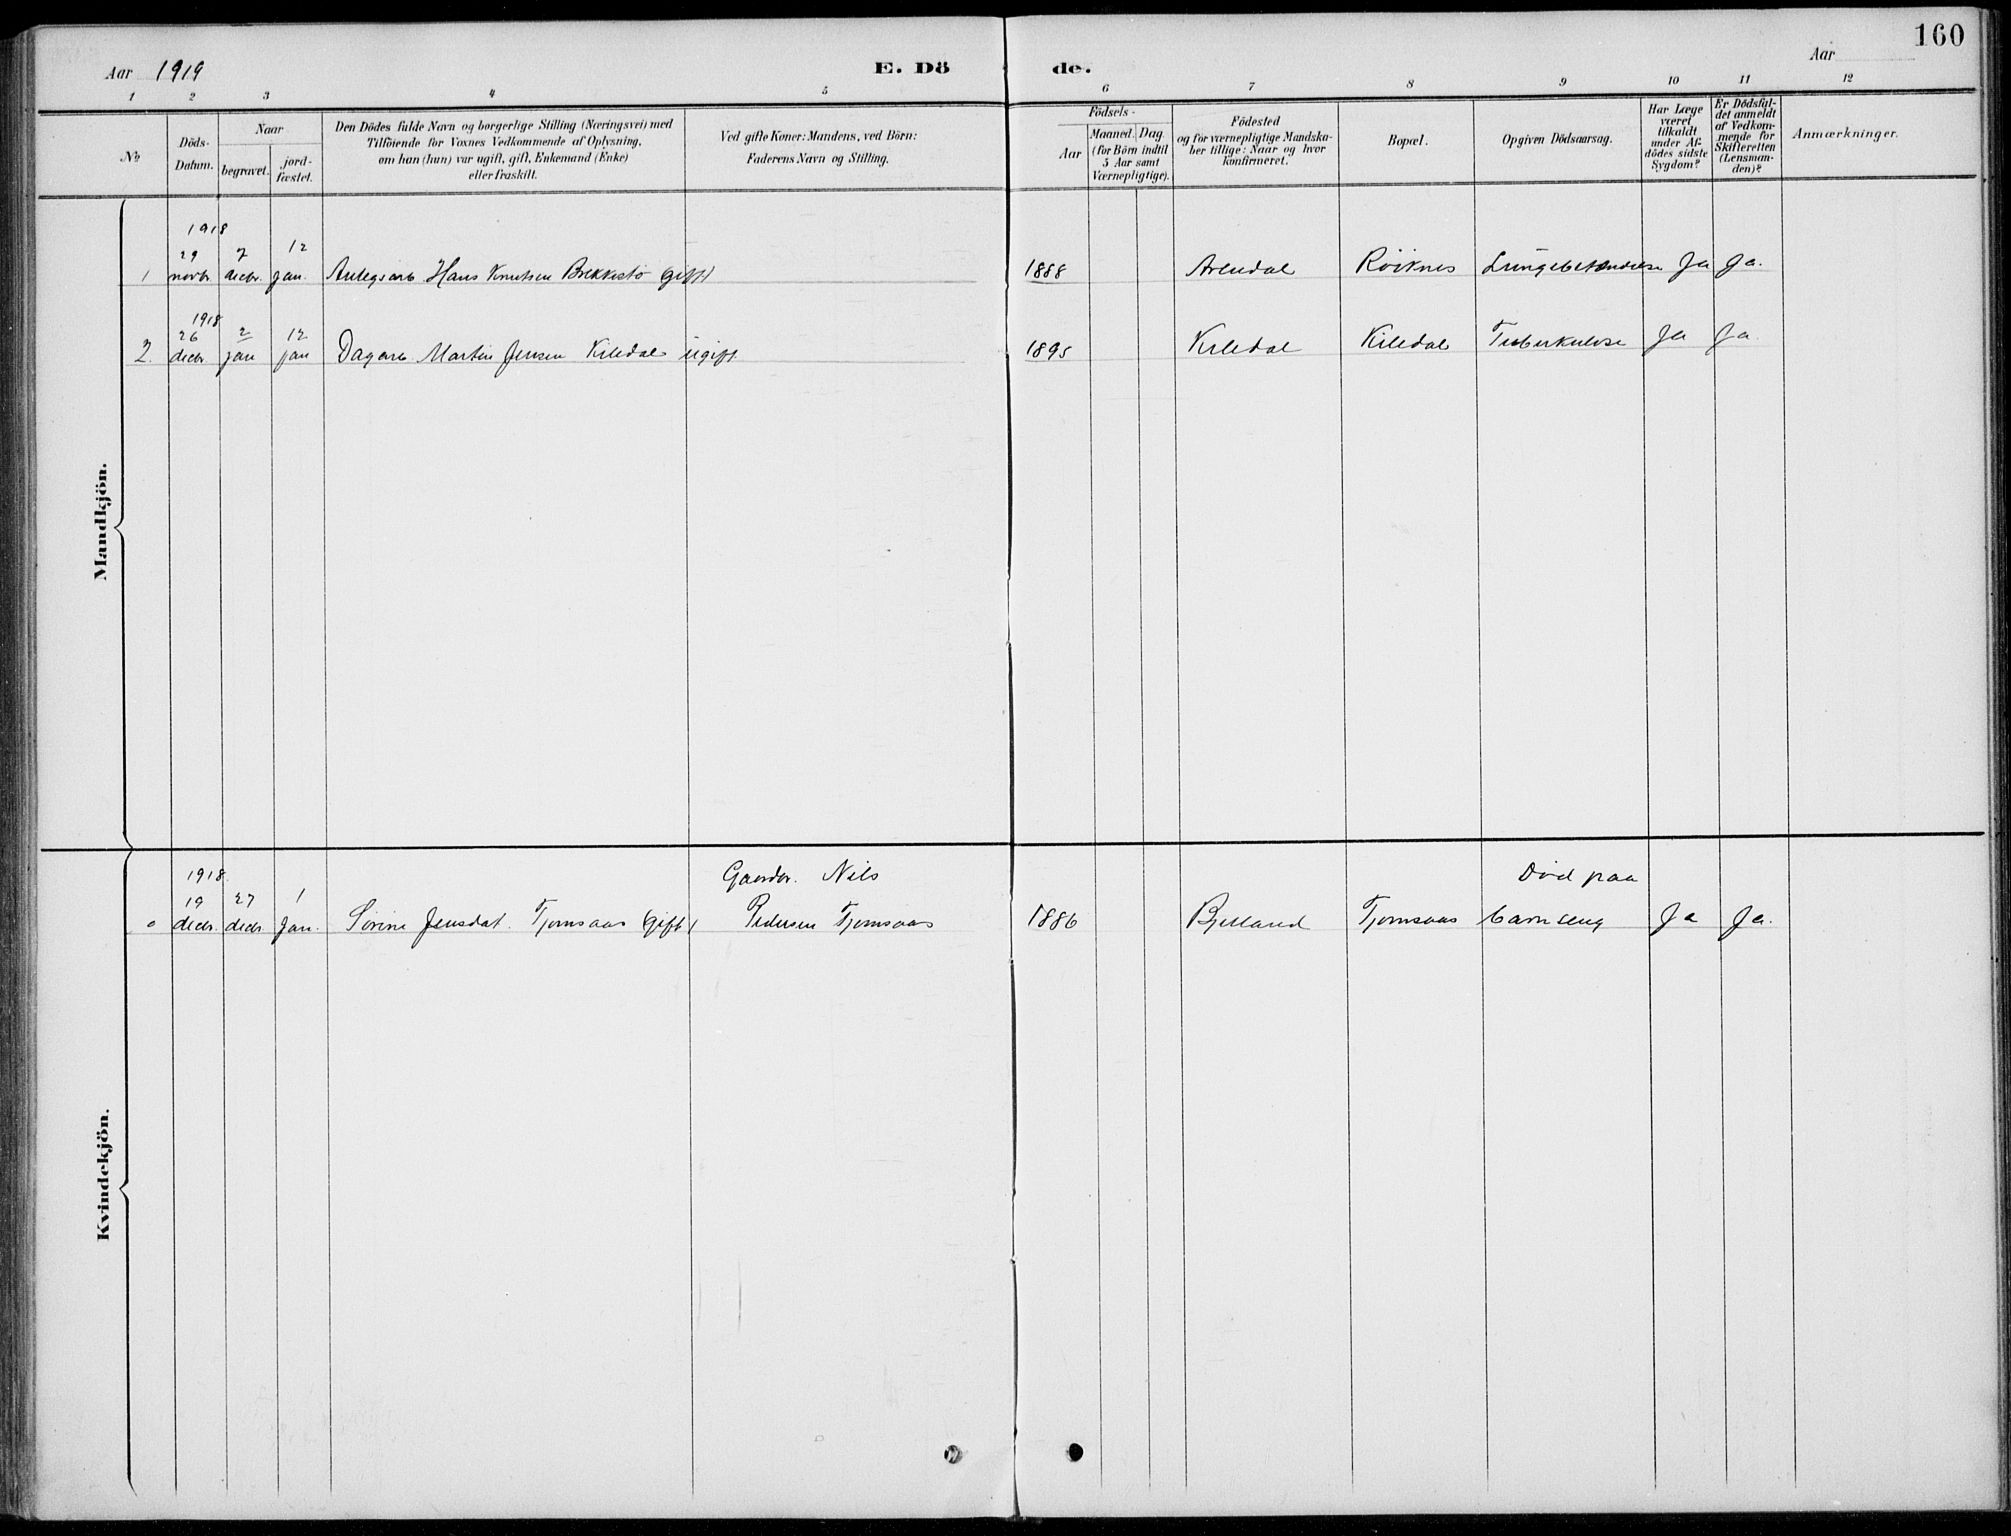 160
Aar 1919 E. Dö de. Aar
1 2 3 4 5 6 7 8 9 10 11 12
No
Döds-Datum.
Naar
begravet.
jord-fæstet.
Den Dödes fulde Navn og borgerlige Stilling (Næringsvei) med
Tilföiende for Voxnes Vedkommende af Oplysning,
om han (hun) var ugift, gift, Enkemand (Enke)
eller fraskilt.
Ved gifte Koner: Mandens, ved Börn:
Faderens Navn og Stilling.
Födsels-
Aar
Maaned. Dag.
(for Börn indtil
5 Aar samt
Værnepligtige).
Födested
og for værnepligtige Mandska-
ber tillige: Naar og hvor
konfirmeret.
Bopæl.
Opgiven Dödsaarsag.
Har Læge
været
tilkaldt
under Af-
dödes sidste
Sygdom?
Er Dödsfal-
det anmeldt
af Vedkom-
mende for
Skifteretten
(Lensman-
den)?
Anmærkninger.
Mandkjön.
1918
29 7 12
1 novbr. decbr. jan. Anlegsarb. Hans Knutsen Brekkestö (gift) 1888 Arendal Röiknes Lungebetændelse Ja Ja.
1918
26 2 12
2. decbr. jan jan Dagarb. Martin Jensen Kiledal ugift 1895 Kiledal Kiledal Tuberkulose Ja Ja.
Kvindekjön.
1918. Gaardbr. Nils Död paa
19 27 1
0 decbr. decbr. Jan. Sörine Jensdat. Tjomsaas (gift) Pedersen Tjomsaas 1886 Bjelland Tjomsaas barnseng Ja Ja.